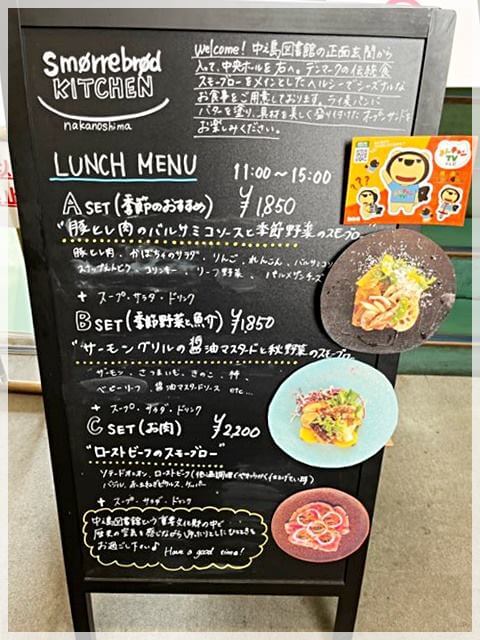 Smørrebrød
KITCHEN
nakanoshima
Welcome! 中之島図書館の正面玄関から
入って、中央ホールを右へ。デンマークの伝統食
スモーブローをメインとしたヘルシーでシーズナルな
お食事をご用意しております。ライ麦パンに
バターを塗り、具材を美しく盛り付けたオープンサンドを
お楽しみください。
LUNCH MENU
11:00〜15:00
A SET (季節のおすすめ) ¥1,850
"豚とし肉のバルサミコソースと季節野菜のスモーブロー"
豚とし肉、かぼちゃのサラダ、りんご、れんこん、バルサミコソ
スナップえんどう、コリンキー、リーフ野菜、パルメザンチーズ
+ スープ・サラダ・ドリンク
B SET (季節野菜と魚介) ¥1,850
"サーモングリルの醤油マスタードと秋野菜のスモーブロー
サーモン、さつまいも、きのこ、柿、
ベビーリーフ、醤油マスタードソース etc...
+ スープ・サラダ・ドリンク
C SET (お肉) ¥2,200
"ローストビーフのスモーブロー"
ソテードオニオン、ローストビーフ
バジル、赤玉ねぎピクルス、ケッパー
+ スープ・サラダ・ドリンク
中之島図書館という重要文化財の中で
歴史の空気を感じながら ゆったりとしたひとときを
お過ごし下さい♪ Have a good time!
TV